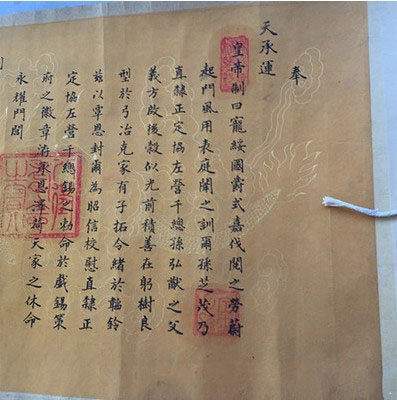 奉
天承運
皇帝制曰寵綏國爵式嘉伐閱之勞蔚
起門風用表庭闈之訓爾孫芝茂乃
直隸正定協左營千總孫弘猷之父
義方啟後穀似光前積善在躬樹良
型於弓冶克家有子拓令緒於韜鈐
茲以覃恩封爾為昭信校慰直隸正
定協左營千總錫之勑命於戲錫策
府之徽章洊承恩澤荷天家之休命
永耀門閭